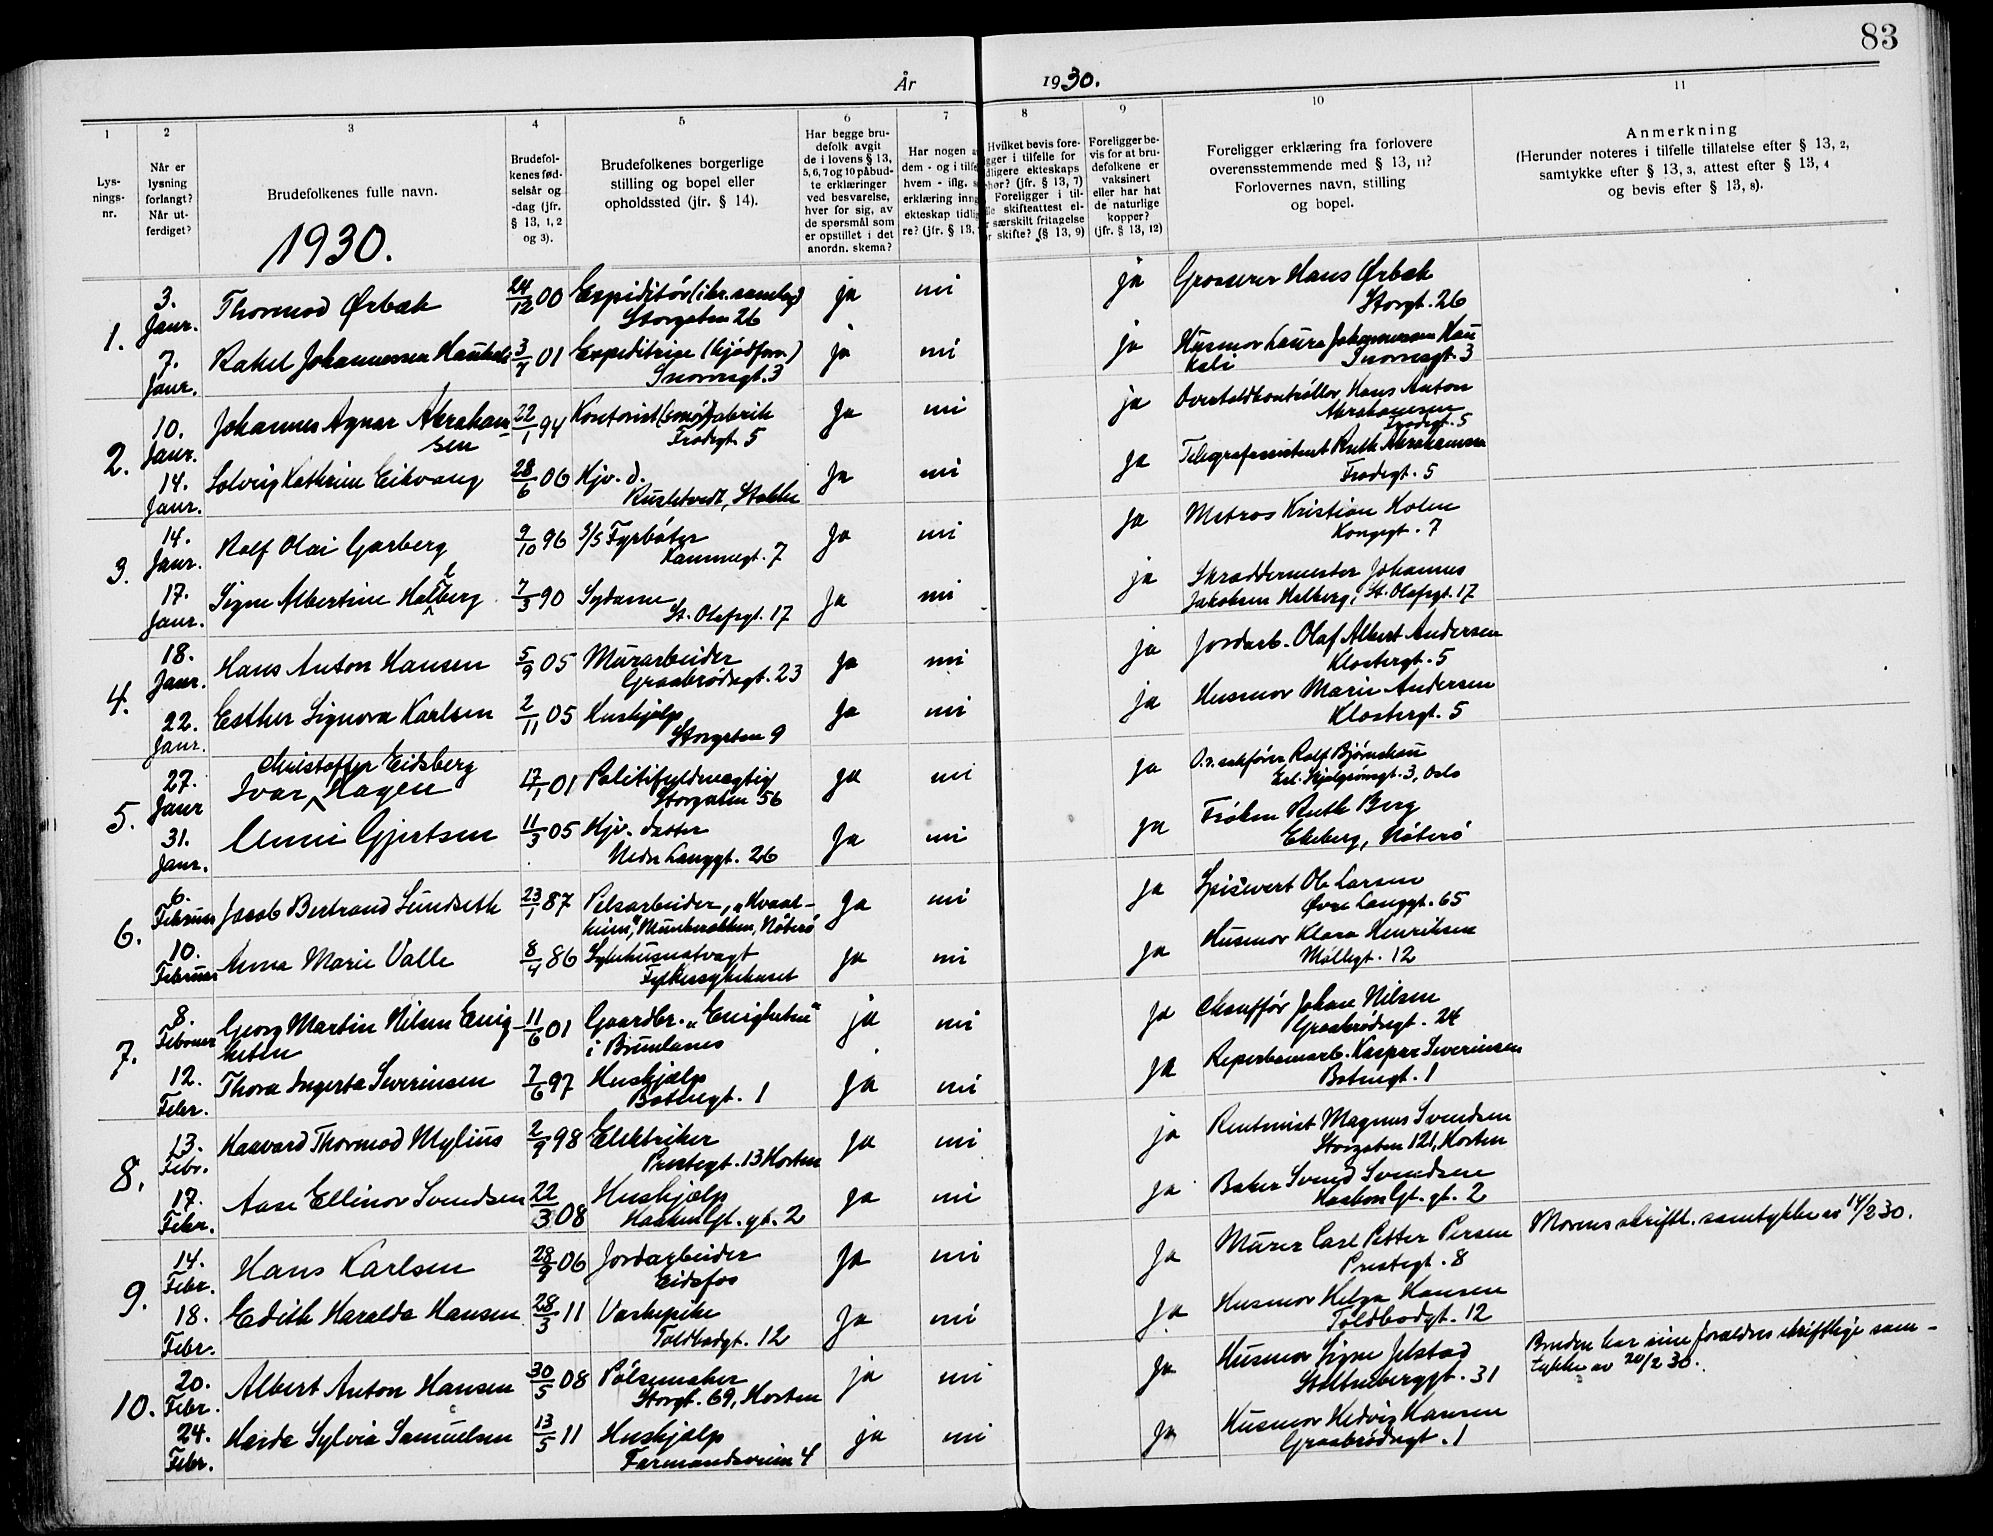 83
År 1930.
1
2
3
4
5
6
7
8
9
10
11
Lys-
nings-
nr.
Når er
lysning
forlangt?
Når ut-
ferdiget?
Brudefolkenes fulle navn.
Brudefol-
kenes fød-
selsår og
-dag (jfr.
§ 13, 1, 2
og 3).
Brudefolkenes borgerlige
stilling og bopel eller
opholdssted (jfr. § 14).
Har begge bru-
defolk avgit
de i lovens § 13,
5, 6, 7 og 10 påbud-
te erklæringer
ved besvarelse,
hver for sig, av
de spørsmål som
er opstillet i det
anordn. skema?
Har nogen a
dem - og i tilfe
hvem - iflg.
erklæring inng
ekteskap tidlig
re? (jfr. § 13,
Hvilket bevis fore-
gger i tilfelle for
dligere ekteskaps
hør? (jfr. § 13, 7)
Foreligger i til-
le skifteattest el-
r særskilt fritagelse
r skifte? (§ 13, 9)
Foreligger be-
vis for at bru-
defolkene er
vaksinert
eller har hat
de naturlige
kopper?
(jfr. § 13, 12)
Foreligger erklæring fra forlovere
overensstemmende med § 13, 11?
Forlovernes navn, stilling
og bopel.
Anmerkning
(Herunder noteres i tilfelle tillatelse efter § 13, 2,
samtykke efter § 13, 3, attest efter § 13, 4
og bevis efter § 13, 8).
1930.
1.
3. Janr. Thormod Ørbæk 24/12 00 Expeditør (i kr. samlag) ja nei ja Grosserer Hans Ørbæk
Storgaten 26 Storgt. 26
7. Janr. Rakel Johannessen Haukeli 3/7 01 Expeditrise (kjødforr.) ja nei ja Husmor Laura Johannessen Hau
Snorresgt. 3 keli Snorresgt. 3
2.
10. Janr. Johannes Agnar Abraham- 22/1 94 Kontorist (smørfabrik ja nei ja Overtoldkontrollør Hans Anton
sen Frodegt. 5 Abrahamsen
Frodegt. 5
14. Janr. Solveig Kathrine Eikvang 28/6 06 Hjv. d. ja nei ja Telegrafassistent Ruth Abrahamsen
Stokke Frodegt. 5
3.
14. Janr. Rolf Olai Garberg 9/10 96 S/S Fyrbøter ja nei ja Matros Kristian Holm
Kammegt. 7 Kongegt. 7
17. Janr. Signe Albertine Halberg 7/3 90 Sydame ja nei ja Skræddermester Johannes
St. Olafsgt. 17 Jakobsen Helberg, St. Olafsgt. 17
4.
18. Janr. Hans Anton Hansen 5/9 05 Murarbeider ja nei ja Jordarb. Olaf Albert Andersen
Graabrødregt. 23 Klostergt. 5
22. Janr. Esther Signora Karlsen 2/11 05 Hushjelp ja nei ja Husmor Marie Andersen
Storgaten 9 Klostergt. 5
5.
Christoffer Eidsberg
27. Janr Ivar Hagen 17/1 01 Politifuldmægtig ja nei ja O.r. sakfører Rolf Bjørnskau
Storgaten 56 Erl. Skjalgsønsgt. 3, Oslo
31. Janr. Unni Gjertsen 11/3 05 Hjv. datter ja nei ja Frøken Ruth Berg
Nedre Langgt. 26 Ekeberg, Nøterø
6.
6. Februar Jacob Bertrand Sundseth 23/1 87 Pelsarbeider, "Kvaal- ja nei ja Spisevert Ole Larsen
heim", Munkerekken, Nøterø Øvre Langgt. 65
10. Februar Anna Marie Valle 8/4 86 Sykehusnatvagt ja nei ja Husmor Klara Henriksen
Fylkessykehuset Møllegt. 12
7.
8. Februar Georg Martin Nilsen Enig- 11/6 01 Gaardbr. "Enigheten" ja nei ja Chauffør Johan Nilsen
heten i Brunlanes Graabrødregt. 24
12. Febr. Thora Ingerta Severinsen 7/6 97 Hushjælp ja nei ja Reperbanearb. Kasper Severinsen
Batengt. 1 Batengt. 1
8.
13. Febr. Haavard Thormod Mylius 2/9 98 Elektriker ja nei ja Rentenist Magnus Svendsen
Prestegt. 13 Horten Storgaten 121, Horten
17. Febr. Aase Ellinor Svendsen 22/3 08 Hushjælp ja nei ja Baker Svend Svendsen
Haakon Gt. gt. 2 Haakon Gt. gt. 2
9.
14. Febr. Hans Karlsen 28/9 06 Jordarbeider ja nei ja Murer Carl Petter Persen Morens skriftl. samtykke av 14/2 30.
Eidsfos Prestegt. 8
18. Febr. Edith Haralda Hansen 28/3 11 Vaskepike ja nei ja Husmor Helga Hansen
Toldbodgt. 12 Toldbodgt. 12
10.
20. Febr. Albert Anton Hansen 30/5 08 Pølsemaker ja nei ja Husmor Signe Jelstad Bruden har sine forældres skriftlige sam-
Storgt. 69, Horten Stoltenberggt. 31 tykke av 20/2 30.
24. Febr. Harda Sylvia Samuelsen 13/5 11 Hushjælp ja nei ja Husmor Hedvig Hansen
Farmandsveien 4 Graabrødregt. 1